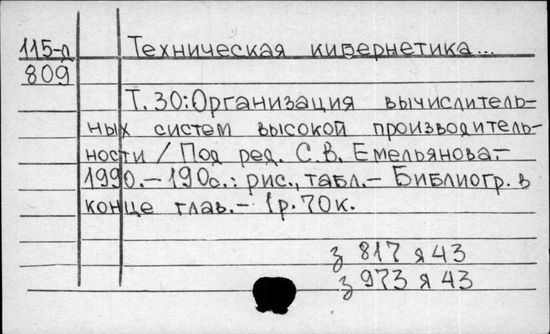 115-л Техническая кибернетика...
809
Т. 30: Организация вычислитель-
ных систем высокой производитель-
ности / Под ред. С.В. Емельянова.-
1990.-190с.: рис., табл.- Библиогр. в
конце глав.- 1р.70к.
з 817 я 43
з 973 я 43